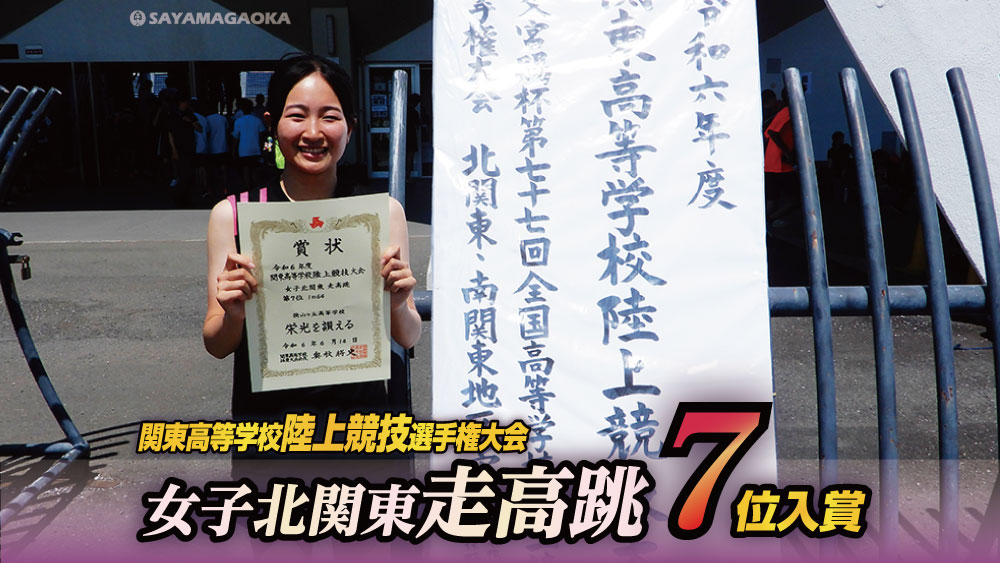 SAYAMAGAOKA
令和六年度
関東高等学校陸上競
宮賜杯第七十七回全国高等学
手権大会 北関東、南関東地
賞状
令和6年度
関東高等学校陸上競技大会
女子北関東 走高跳
第7位 1m64
狭山ヶ丘高等学校
栄光を讃える
令和6年6月14日
関東高等学校選手権大会
関東高等学校陸上競技選手権大会
女子北関東走高跳7位入賞